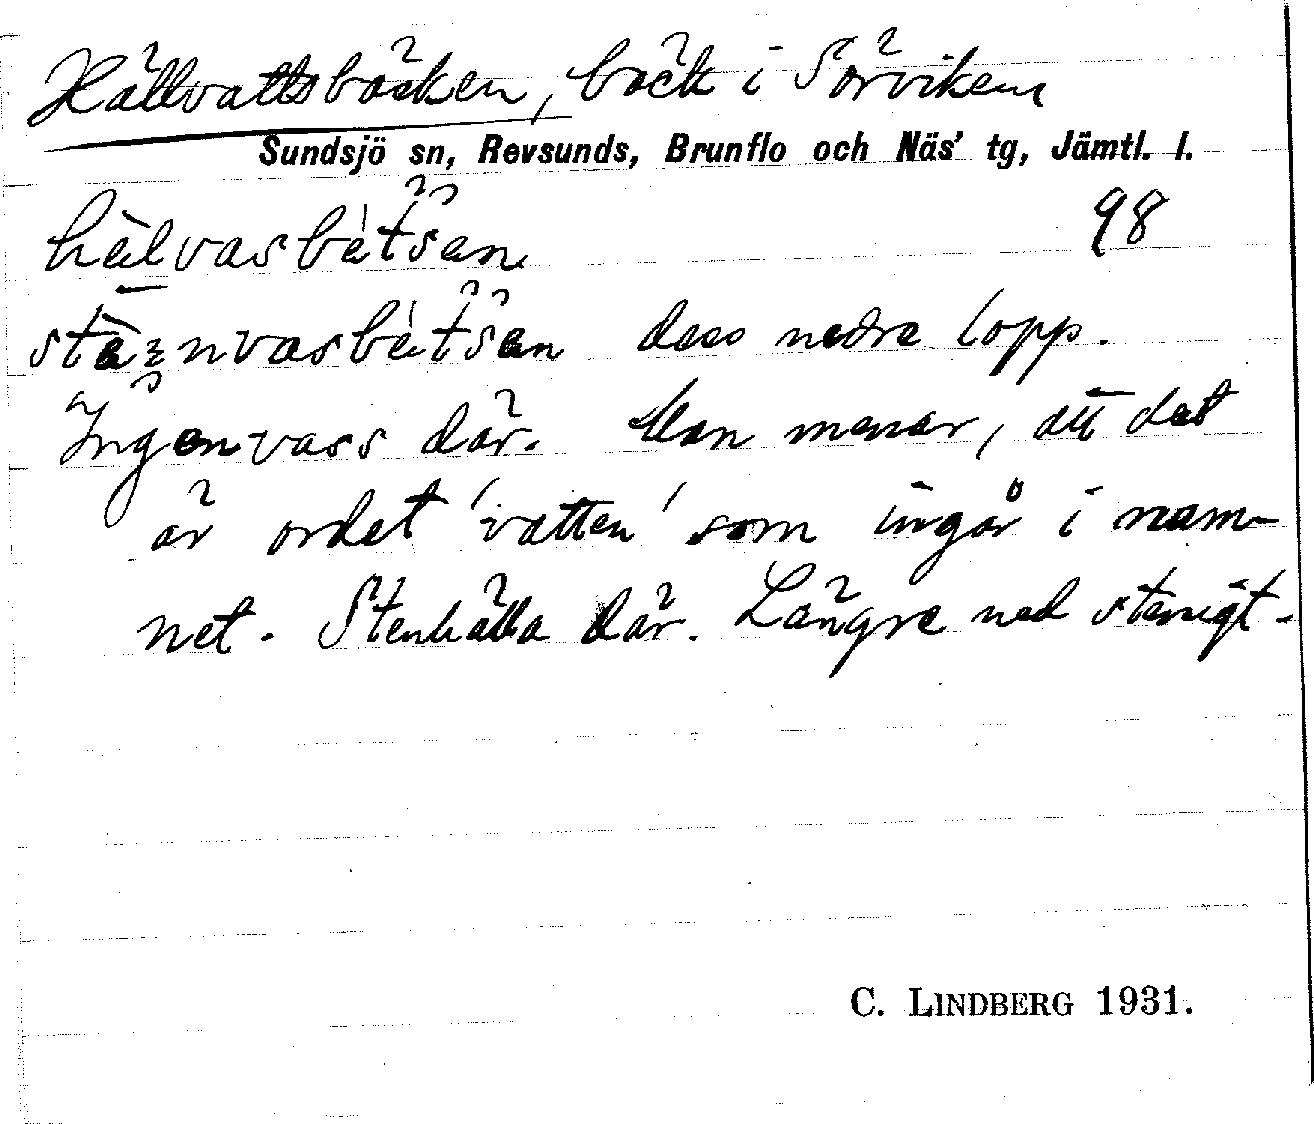 Hällvattsbäcken, bäck i Sörviken
Sundsjö sn, Revsunds, Brunflo och Näs' tg, Jämtl. l.
hälvasbètšan 98
stènvasbètšan dess nedre lopp.
Ingen vass där. Man menar, att det
är ordet 'vatten' som ingår i nam-
net. Stenhälla där. Längre ned stenigt.
C. LINDBERG 1931.